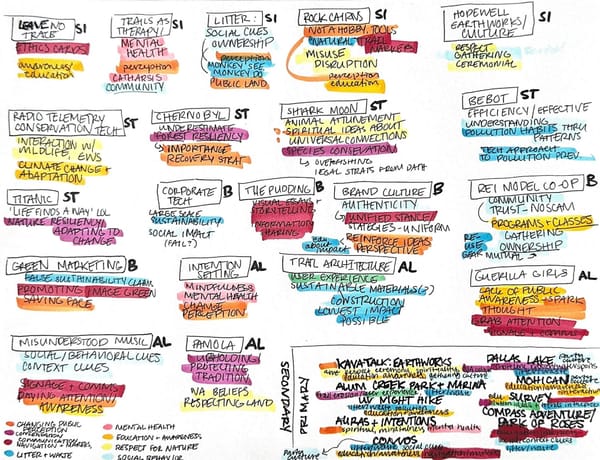 LEAVE NO TRACE
SI
ETHICS CARDS
awareness/
education
TRAILS AS THERAPY/
SI
MENTAL
HEALTH
perception
CATHARSIS
COMMUNITY
LITTER:
SI
SOCIAL CUES
OWNERSHIP
perception
MONKEY SEE
MONKEY DO
PUBLIC LAND
ROCK CAIRNS
SI
NOT A HOBBY. TOOLS
NATURAL TRAIL
MARKERS
MISUSE
DISRUPTION
perception
education
HOPEWELL
EARTHWORKS/
CULTURE
SI
RESPECT
GATHERING
CEREMONIAL
RADIO TELEMETRY
CONSERVATION TECH
ST
INTERACTION W/
WILDLIFE, EWS
CLIMATE CHANGE +
ADAPTATION
CHERNOBYL
ST
UNDERESTIMATE
FOREST RESILIENCY
IMPORTANCE
RECOVERY STRAT
SHARK MOON
ST
ANIMAL ATTUNEMENT
SPIRITUAL IDEAS ABOUT
UNIVERSAL CONNECTIONS
SPECIES CONSERVATION
↳ OVERFISHING
LEGAL STRATS FROM DATA
BEBOT
ST
EFFICIENCY/EFFECTIVE
UNDERSTANDING
POLLUTION HABITS THRU
PATTERNS
TECH APPROACH
TO POLLUTION PREV.
TITANIC
ST
"LIFE FINDS A WAY" LOL
NATURE RESILIENCY/
ADAPTING TO
CHANGE
CORPORATE
TECH
B
LARGE SCALE
SUSTAINABILITY
SOCIAL IMPACT
(FAIL?)
THE PUDDING
B
VISUAL ESSAYS +
STORYTELLING
INFORMATION
SHARING
BRAND CULTURE
B
AUTHENTICITY
UNIFIED STANCE/
STATEGIES - UNIFORM
edu about impact
REINFORCE IDEAS/
PERSPECTIVE
REI MODEL CO-OP
B
COMMUNITY
TRUST - NO SCAM
PROGRAMS + CLASSES
GATHERING
RE-USE
OWNERSHIP
GEAR MUTUAL
GREEN MARKETING
B
FALSE SUSTAINABILITY CLAIM
PROMOTING IMAGE GREEN
SAVING FACE
INTENTION
SETTING
AL
MINDFULNESS
MENTAL HEALTH
CHANGE
PERCEPTION
TRAIL ARCHITECTURE
AL
USER EXPERIENCE
SUSTAINABLE MATERIALS(?)
CONSTRUCTION
LOWEST IMPACT
POSSIBLE
GUERILLA GIRLS
AL
LACK OF PUBLIC
AWARENESS + SPARK
THOUGHT
GRAB ATTENTION
SIGNAGE + COMMS
MISUNDERSTOOD MUSIC
AL
SOCIAL/BEHAVIORAL CUES
CONTEXT CLUES
SIGNAGE + COMMS
PAYING ATTENTION/
AWARENESS
PAMOLA
AL
UPHOLDING/
PROTECTING
TRADITION
NA BELIEFS
RESPECTING LAND
SECONDARY
PRIMARY
KAVATALK: EARTHWORKS
ALUM CREEK PARK + MARINA
UV MIGHT HIKE
AURAS + INTENTIONS
spiritual, mindfulness
COMOS
DALLAS LAKE
MOHICAN
SURVEY
COMPASS ADVENTURE/
PARK OF ROSES
CHANGING PUBLIC
PERCEPTION
CONSERVATION
LITTER + WASTE
MENTAL HEALTH
EDUCATION + AWARENESS
RESPECT FOR NATURE
SOCIAL BEHAVIOR